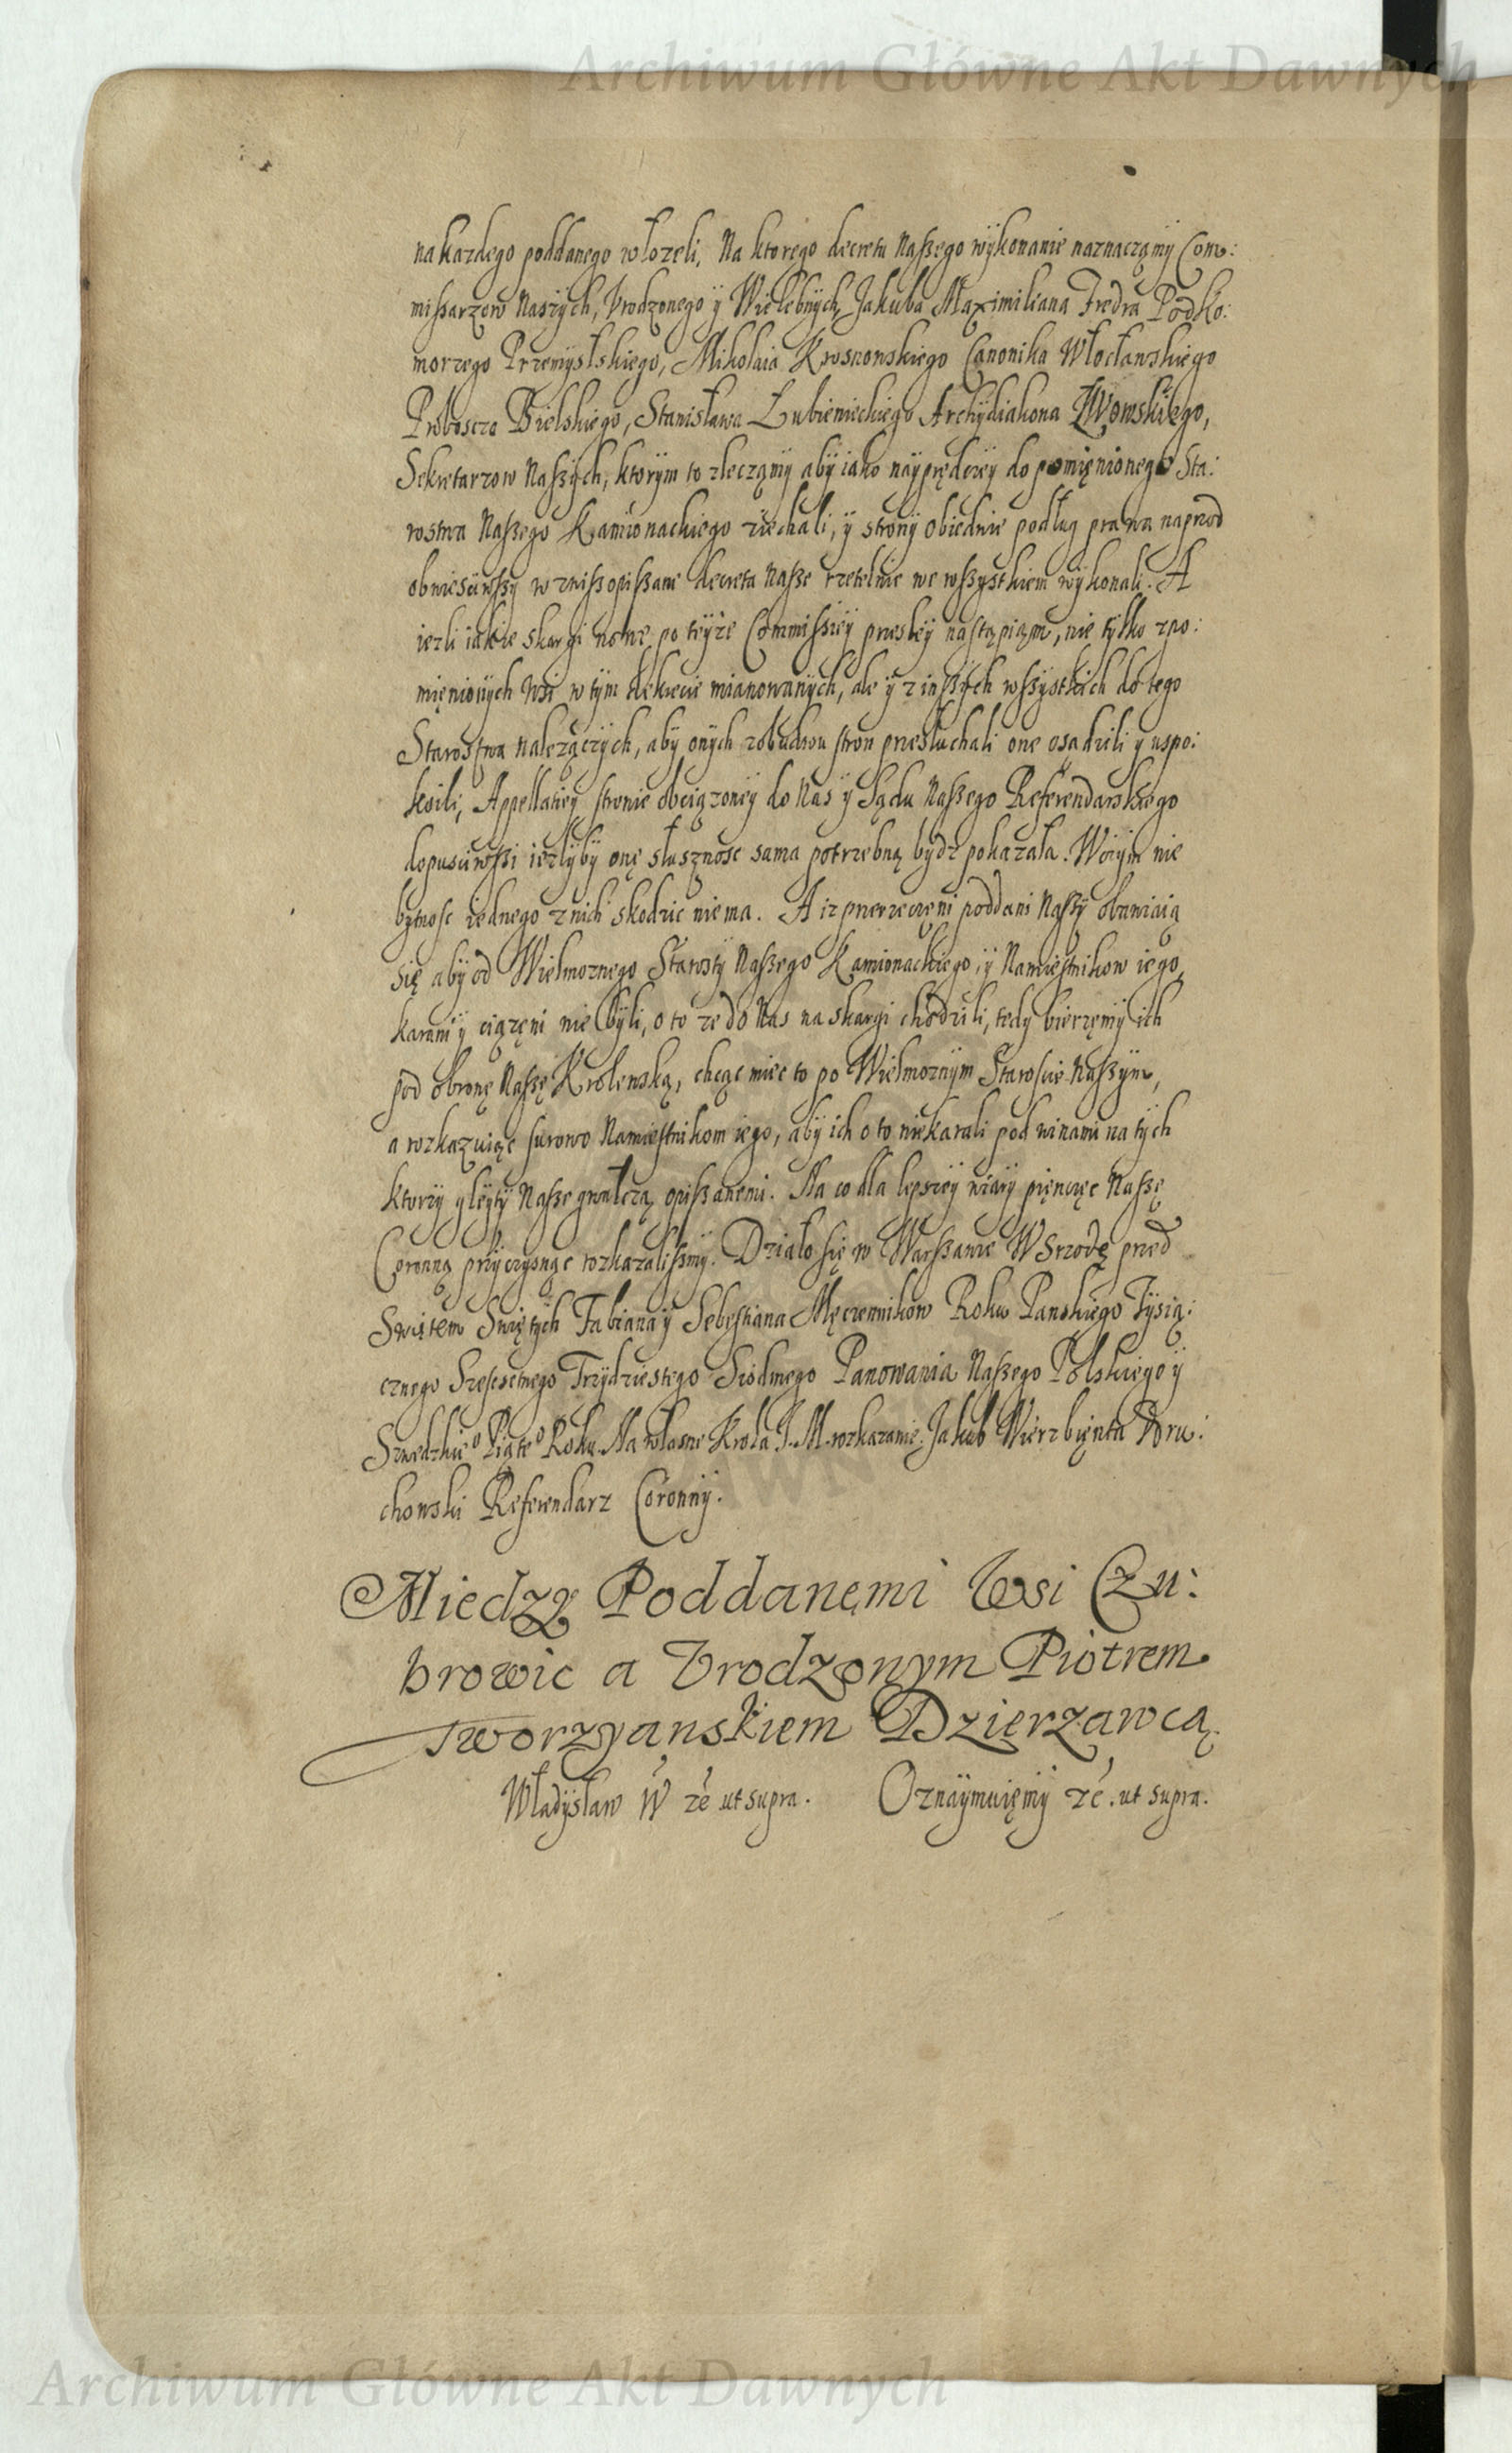 Archiwum Główne Akt Dawnych
na kazdego poddanego włozeli, Na ktorego decretu Naszego wykonanie naznaczamy Com:
missarzow Naszych, Vrodzonego ÿ Wielebnych Jakuba Maximiliana Fredra Podko:
morzego Przemyslskiego, Mikolaia Krosnowskiego Canonika Włocławskiego
Proboscza Bielskiego, Stanisława Łubienieckiego Archydiakona Lwowskiego,
Sekretarzow Naszych, ktorym to zleczamy aby iako nayprędzey do pomięnionego Sta:
rostwa Naszego Kamionackiego ziechali, y strony obiedwie podług prawa naprzod
obwiesciwszy w zwisz opissane decreta Nasze rzetelnie we wszystkiem wykonali. A
iezli iakie skargi nowe po teyze Commissiey przeszłey nastąpią, nie tylko z po:
mięnionych wsi w tym dekrecie mianowanych, ale y z inszych wszystkich do tego
Starostwa nalezączych, aby onych z obudwu stron przesłuchali one osądzili y uspo:
koili, Appellatiey stronie obciązoney do Nas y Sądu Naszego Referendarskiego
dopusciwszi iezlyby onę słusznosc sama potrzebną bydz pokazała. W czym nie
bytnosc iednego z nich skodzic nie ma. A iz przerzeczeni poddani Naszy obawiaią
się aby od Wielmoznego Starosty Naszego Kamionackiego, y Namiestnikow iego,
karani y ciązęni nie byli, o to ze do Nas na skargi chodzili, tedy bierzemy ich
pod obronę Naszę Krolewską, chcąc miec to po Wielmoznym Staroscie Naszym,
a rozkazuiąc surowo Namiestnikom iego, aby ich o to nie karali pod winami na tych
ktorzy gleyty Nasze gwałczą opissanemi. Na co dla lepszey wiary pięczęc Naszę
Coronną przycysnąc rozkazalismy. Działo się w Warszawie W Srzodę przed
Swiętem Swiętych Fabiana y Sebestiana Męczennikow Roku Panskiego Tysią:
cznego Szescsetnego Trzydziestego Siodmego Panowania Naszego Polskiego y
Szwedzkie° Piąte° Roku. Na własne Krola J. M. rozkazanie. Jakub Wierzbięnta Doru:
chowski Referendarz Coronny.
Miedzy Poddanemi Wsi Czu:
browic a Vrodzonym Piotrem
Tworzyanskiem Dzierzawcą.
Władysław IV zc ut supra. Oznaymuięmy zc. ut supra.
Archiwum Główne Akt Dawnych